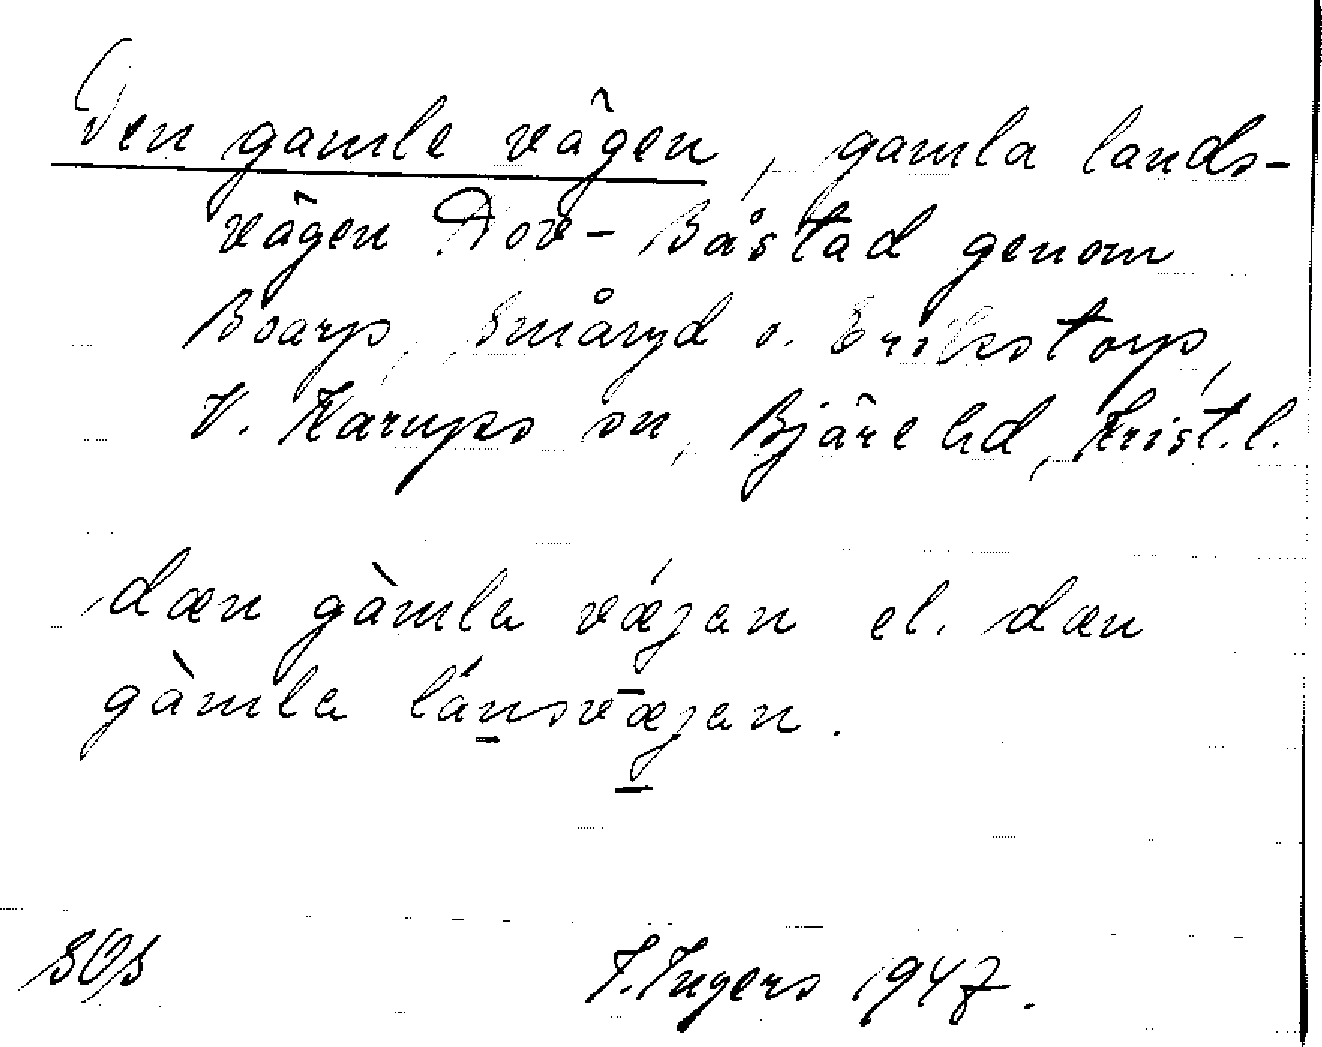 Den gamle vägen, gamla lands-
vägen Dov - Båstad genom
Boarp, Småryd o. Erikstorp,
V. Karups sn, Bjäre hd, Krist.l.
dæn gàmla vǽjan el. dæn
gàmla lánsvæjan.
SOS I. Ingers 1947.